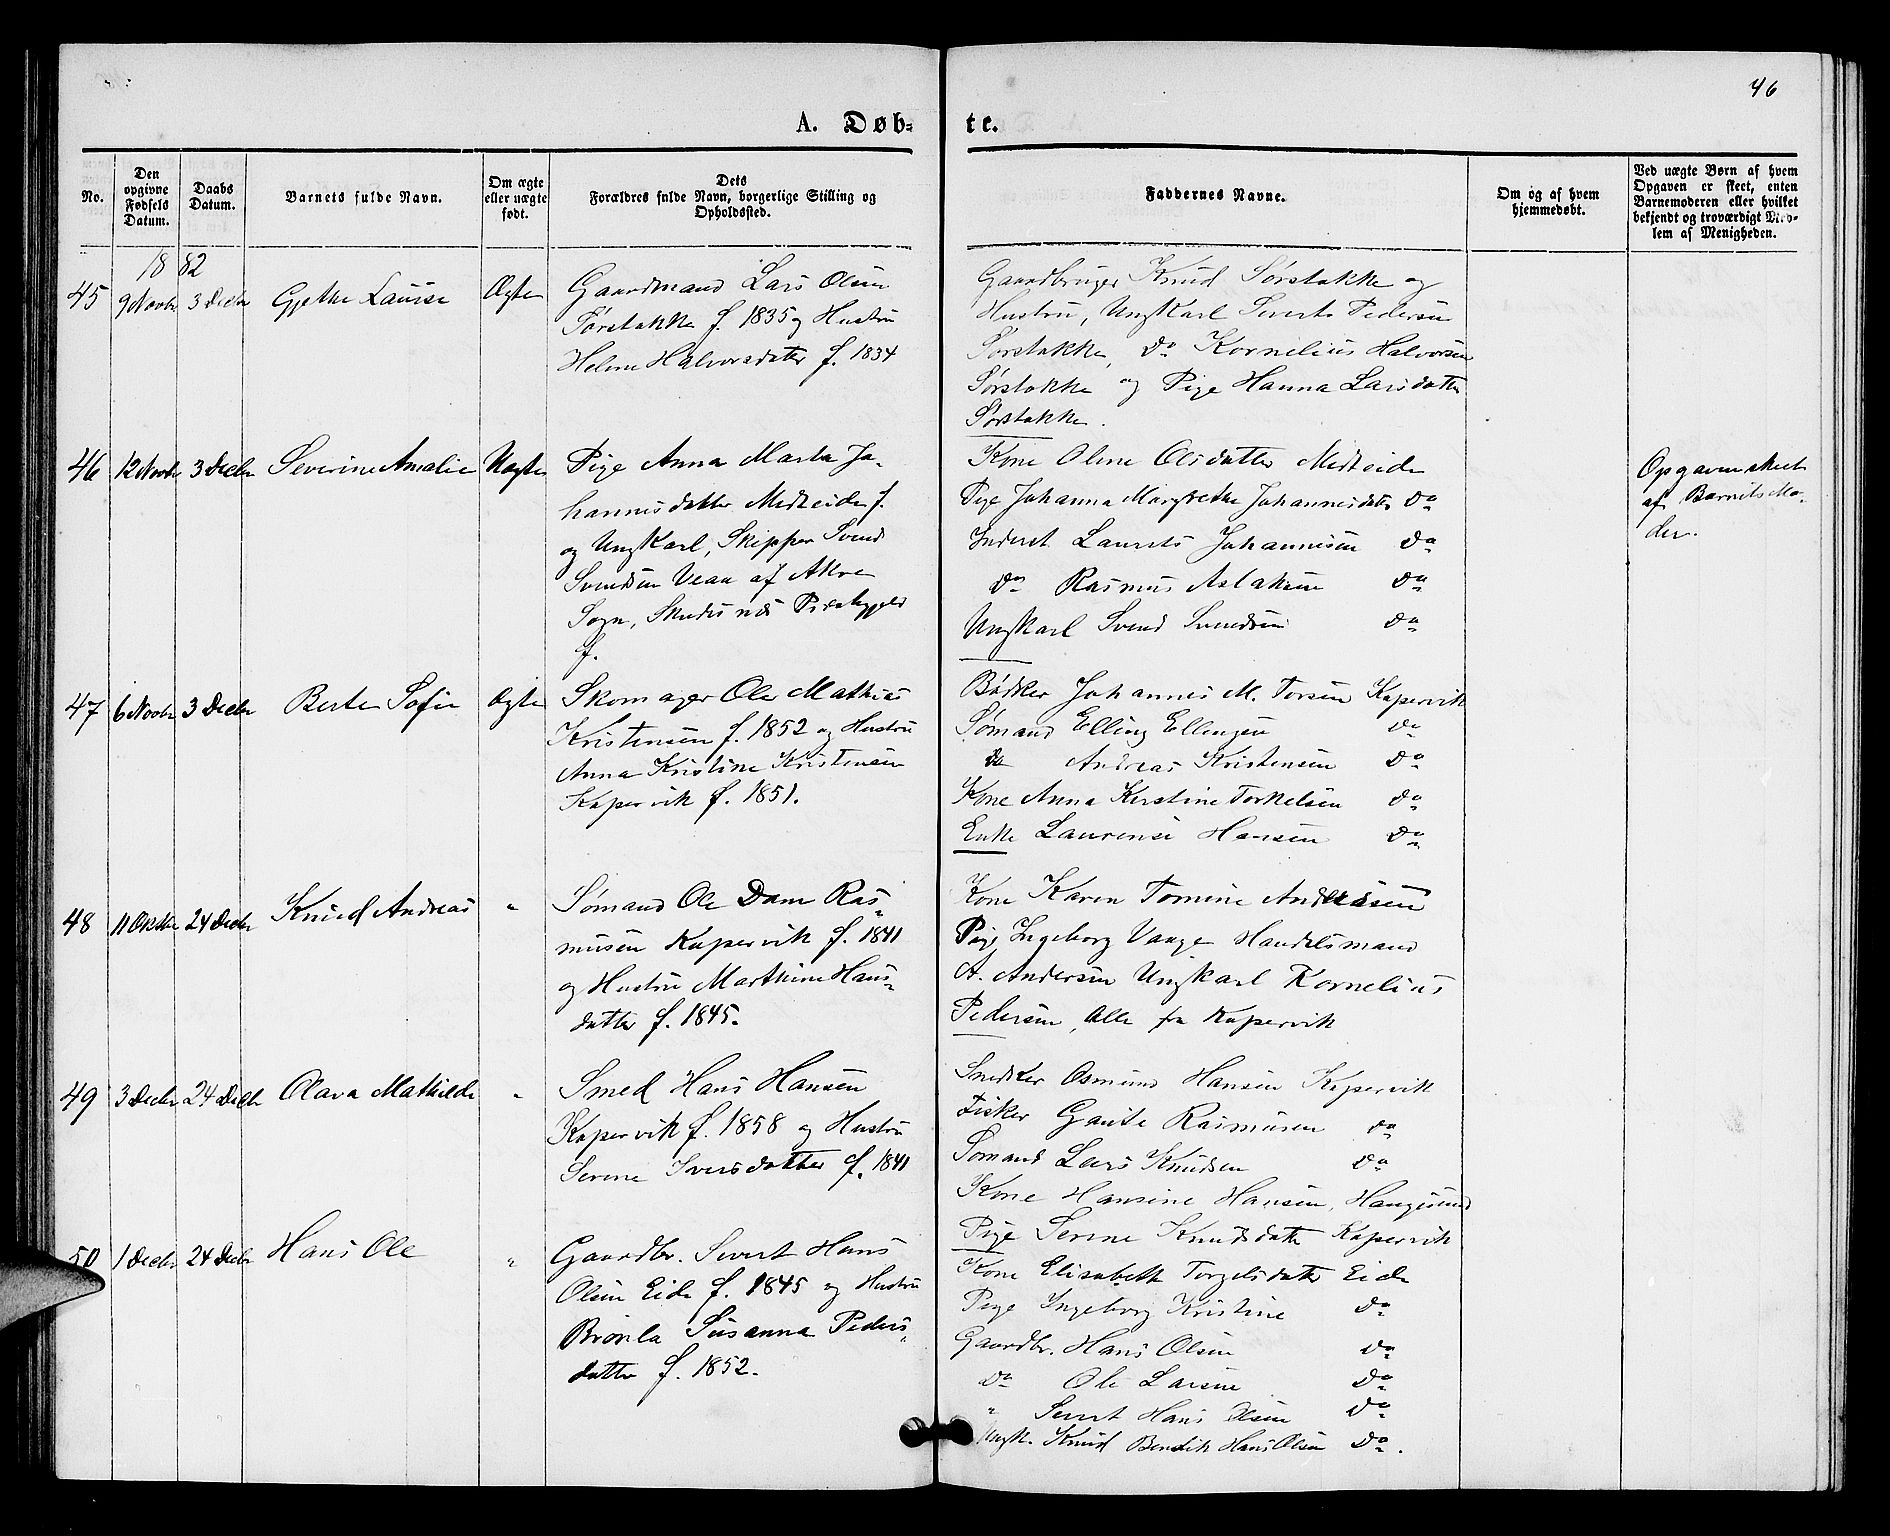 46
A. Døb-
te.
No.
Den opgivne Fødsels Datum.
Daabs Datum.
Barnets fulde Navn.
Om ægte eller uægte født.
Dets Forældres fulde Navn, borgerlige Stilling og Opholdssted.
Faddernes Navne.
Om og af hvem hjemmedøbt.
Ved uægte Børn af hvem Opgaven er skeet, enten Barnemoderen eller hvilket bekjendt og troværdigt Medlem af Menigheden.
1882
45 9 Novbr 3 Decbr Gjethe Lauise Ægte
Gaardmand Lars Olsen
Sørstokke f. 1835 og Hustru
Helene Halvorsdatter f. 1834
Gaardbruger Knud Sørstokke og
Hustru, Ungkarl Sivert Pedersen
Sørstokke, Do Kornelius Halvorsen
Sørstokke og Pige Hanna Larsdatter
Sørstokke.
46 12 Novbr 3 Decbr Severine Amalie Uægte
Pige Anna Marta Jo-
hannisdatter Medheide f.
og Ungkarl, Skipper Svend
Svendsen Vean af Akre
Sogn, Skudesnæs
f.
Kone Olene Olsdatter Medheide
Pige Johanna Margrethe Johannesdatr Do
Inderst Laurits Johannesen Do
Do Rasmus Aslaksen Do
Ungkarl Svend Svendsen Do
Opgaven skeet
af Barnets Mo-
der.
47 6 Novbr 3 Decbr Berte Sofie Ægte
Skomager Ole Mathias
Kristensen f. 1852 og Hustru
Anna Kristine Kristensen
Kopervik f. 1851.
Bødker Johannes M. Torsen Kopervik
Sømand Elling Ellingsen Do
Do Andreas Kristensen Do
Kone Anna Kirstine Torkelsen Do
Enke Laurense Hansen Do
48 11 Oktbr 24 Decbr Knud Andreas "
Sømand Ole Dam Ras-
musen Kopervik f. 1841
og Hustru Marthine Hans-
datter f. 1845.
Kone Karen Tomine Andersen
Pige Ingeborg Vaage Handelsmand
A. Andersen Ungkarl Kornelius
Pedersen, Alle fra Kopervik
49 3 Decbr 24 Decbr Olava Mathilde "
Smed Hans Hansen
Kopervik f. 1858 og Hustru
Serine Iversdatter f. 1841
Snedker Osmund Hansen Kopervik
Fisker Gaute Rasmusen Do
Sømand Lars Knudsen Do
Kone Hansine Hansen, Haugesund
Pige Serine Knudsdatter Kopervik
50 1 Decbr 24 Decbr Hans Ole "
Gaardbr. Sivert Hans
Olsen Eide f. 1845 og Hustru
Susanna Peders-
datter f. 1852.
Kone Elisabeth Torgelsdatter Eide
Pige Ingeborg Kristine Do
Gaardbr. Hans Olsen Do
Do Ole Larsen Do
" Sivert Hans Olsen Do
Ungk. Knud Bendik Hans Olsen Do.